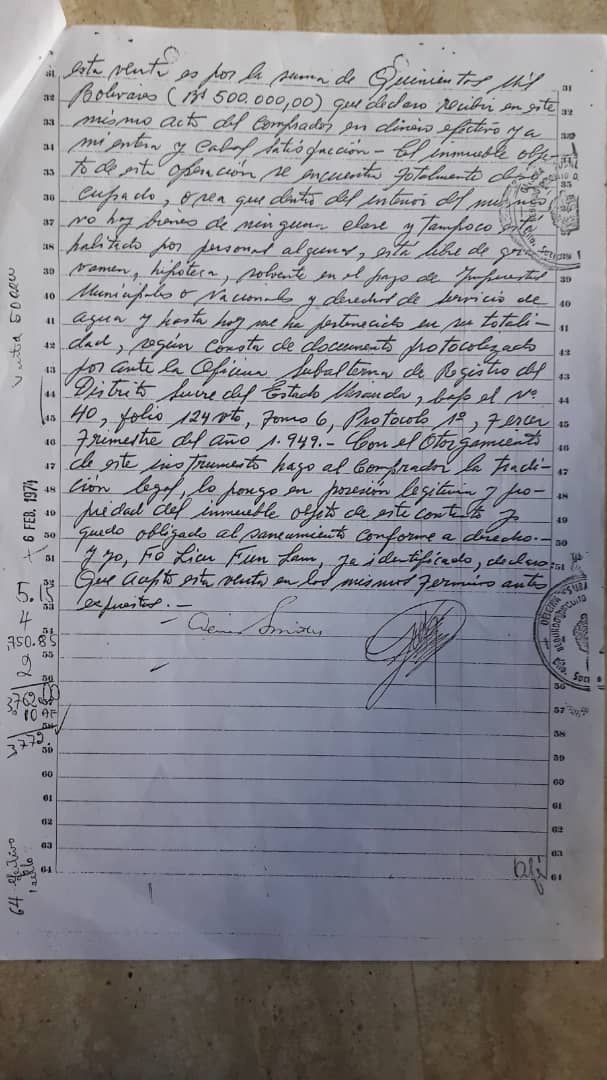 esta venta es por la suma de Quinientos mil
Bolivares (Bs 500.000,00) que declaro recibir en este
mismo acto del Comprador en dinero efectivo y a
mi entera y Cabal satisfacción - El inmueble obje-
to de esta operación se encuentra totalmente deso-
cupado, o sea que dentro del interior del mismo
no hay bienes de ninguna clase y tampoco está
habitado por personas algunas, está libre de gra-
vamen, hipoteca, solvente en el pago de Impuestos
Municipales o Nacionales y derechos de servicio de
agua y hasta hoy me ha pertenecido en su totali-
dad, según consta de documento protocolizado
por ante la Oficina Subalterna de Registro del
Distrito Sucre del Estado Miranda, bajo el Nº
40, folio 124 vto, Tomo 6, Protocolo 1º, Tercer
Trimestre del año 1.949.- Con el Otorgamiento
de este instrumento hago al Comprador la tradi-
ción legal, lo pongo en posesión legitima y pro-
piedad del inmueble objeto de este contrato y
quedo obligado al saneamiento conforme a derecho.-
Y yo, Fo Lieu Fun Lam, ya identificado, declaro:
Que acepto esta venta en los mismos terminos antes
expuestos.-
31
32
33
34
35
36
37
38
39
40
41
42
43
44
45
46
47
48
49
50
51
52
53
54
55
56
57
58
59
60
61
62
63
64
6 FEB. 1974
5.15
4
750.85
64 efectivo